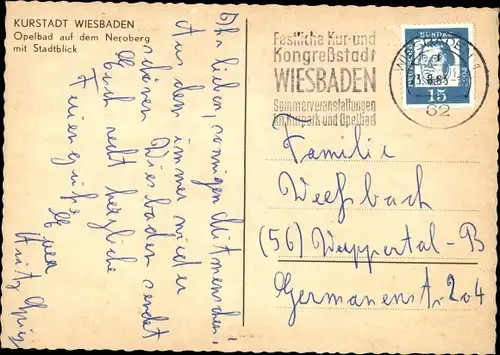 KURSTADT WIESBADEN
Opelbad auf dem Neroberg
mit Stadtblick
Ihr lieben, sonnigen Mitmenschen!
Aus dem immer wieder
schönen Wiesbaden sendet
Euch recht herzliche
Feriengrüße
Euer
Festliche Kur- und
Kongreßstadt
WIESBADEN
Sommerveranstaltungen
im Kurpark und Opelbad
WIESBADEN 1
62
DEUTSCHE BUNDESPOST
15
Familie
(56) Wuppertal-B
Germanenstr 204